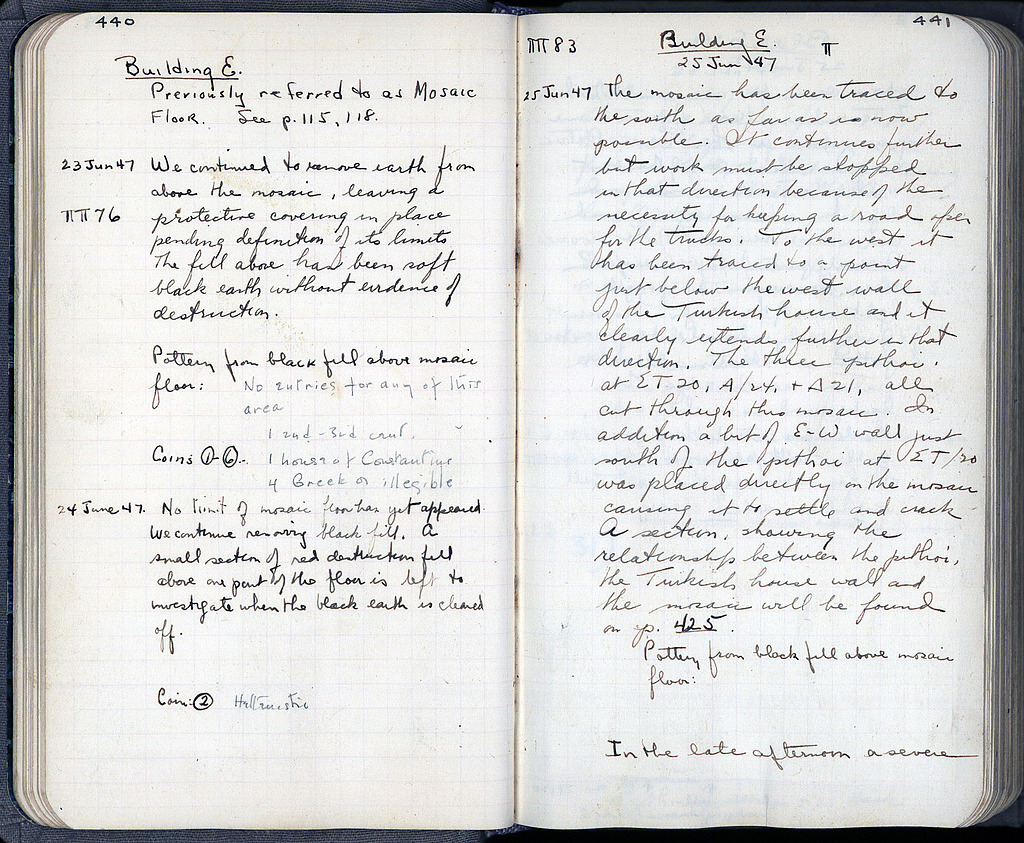 440
Building E.
Previously referred to as Mosaic
Floor. See p. 115, 118.
23 Jun 47 We continued to remove earth from
above the mosaic, leaving a
ΠΠ 76 protective covering in place
pending definition of its limits
The fill above has been soft
black earth without evidence of
destruction.
Pottery from black fill above mosaic
floor: No entries for any of this
area
1 2nd-3rd cent.
Coins ①-⑥. 1 house of Constantine
4 Greek or illegible
24 June 47. No limit of mosaic floor has yet appeared.
We continue removing black fill. A
small section of red destruction fill
above one part of the floor is left to
investigate when the black earth is cleared
off.
Coin: ② Hellenistic
441
ΠΠ 83 Building E. Π
25 Jun 47
25 Jun 47 The mosaic has been traced to
the south as far as is now
possible. It continues further
but work must be stopped
in that direction because of the
necessity for keeping a road open
for the trucks. To the west it
has been traced to a point
just below the west wall
of the Turkish house and it
clearly extends further in that
direction. The three pithoi,
at ΣΤ 20, Α/24, + Δ 21, all
cut through this mosaic. In
addition a bit of E-W wall just
south of the pithoi at ΣΤ/20
was placed directly on the mosaic
causing it to settle and crack
A section, showing the
relationship between the pithoi,
the Turkish house wall and
the mosaic will be found
on p. 425.
Pottery from black fill above mosaic
floor:
In the late afternoon a severe